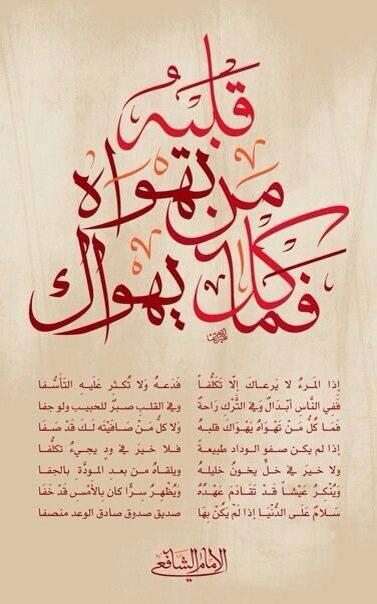 قلبه
من تهواه
فما كل يهواك
إذا المرء لا يرعاك إلا تكلفا فدعه ولا تكثر عليه التأسفا
ففي الناس أبدال وفي الترك راحة وفي القلب صبر للحبيب ولو جفا
فما كل من تهواه يهواك قلبه ولا كل من صافيته لك قد صفا
إذا لم يكن صفو الوداد طبيعة فلا خير في ود يجيء تكلفا
ولا خير في خل يخون خليله ويلقاه من بعد المودة بالجفا
وينكر عيشا قد تقادم عهده ويظهر سرا كان بالأمس قد خفا
سلام على الدنيا إذا لم يكن بها صديق صدوق صادق الوعد منصفا
الإمام الشافعي